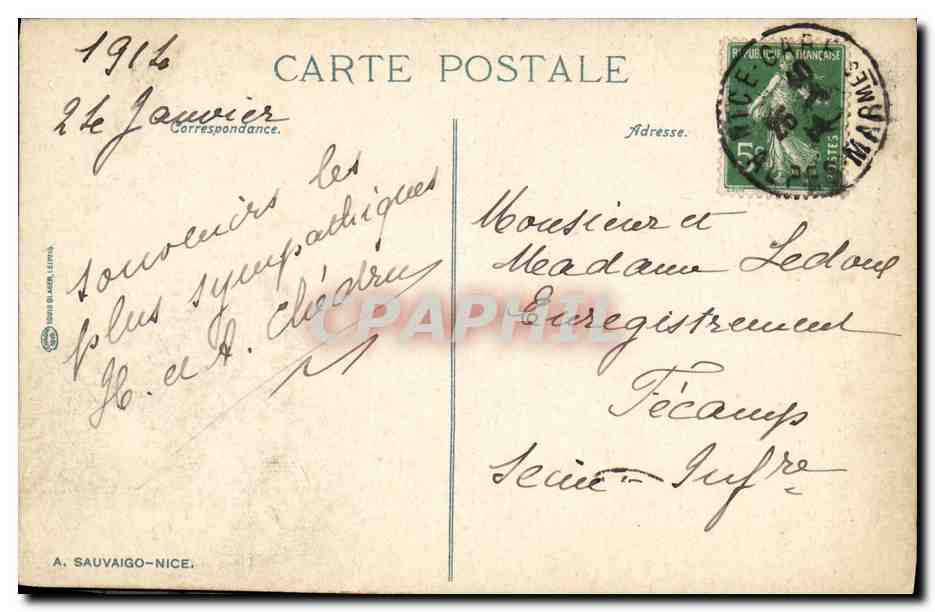 CARTE POSTALE
1914
24 Janvier
Correspondance.
souvenirs les
plus sympathiques
H. et A. Chédru
Adresse.
Monsieur et
Madame Ledoux
Enregistrement
Fécamp
Seine-Infre
REPUBLIQUE FRANÇAISE
5c
POSTES
NICE
ALPES MARMES
CPAPHIL
LOUIS GLASER, LEIPZIG
A. SAUVAIGO-NICE.